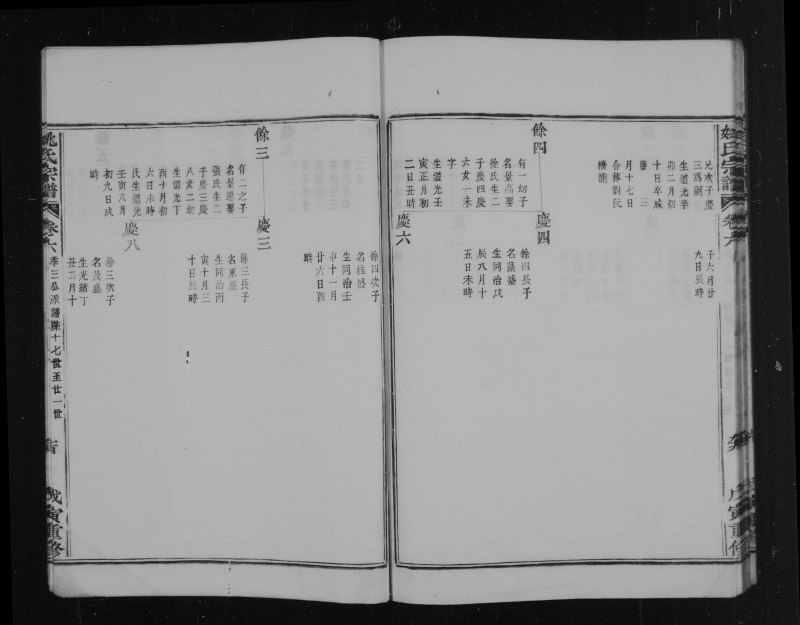 姚氏宗譜
卷六
戊寅重修
兄次子慶
三爲嗣
生道光辛
卯二月初
十日卒咸
豐三
月十七日
合葬劉阮
橋湖
子六月廿
九日辰時
餘四
有一幼子
名景高娶
徐氏生二
子慶四慶
六女一未
字
生道光壬
寅正月初
二日丑時
慶四
餘四長子
名藻盛
生同治戊
辰八月十
五日未時
慶六
餘四次子
名桂盛
生同治壬
申十一月
廿六日酉
時
餘三
有二之子
名景建娶
張氏生二
子慶三慶
八女二幼
生道光丁
酉十月初
六日未時
氏生道光
壬寅八月
初九日戌
時
慶三
餘三長子
名東盛
生同治丙
寅十月三
十日辰時
慶八
餘三次子
名茂盛
生光緒丁
丑二月十
姚氏宗譜
卷六
季三公派譜牒十七世至廿一世
戊寅重修